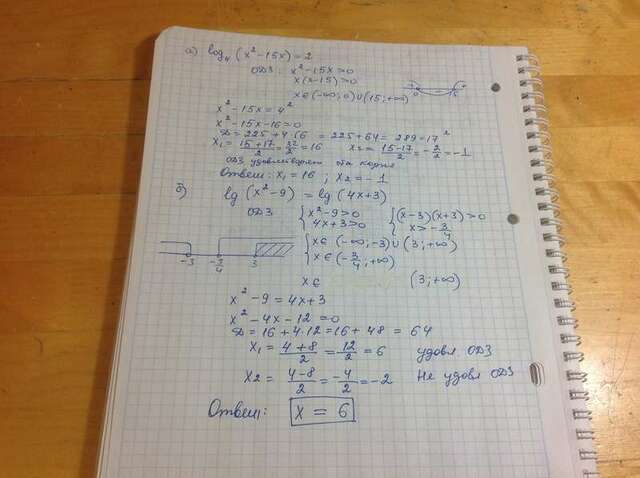 а) log₄ (x² - 15x) = 2
ОДЗ: x² - 15x > 0
x(x-15) > 0
x ∈ (-∞; 0) ∪ (15; +∞)
0 15
x² - 15x = 4²
x² - 15x - 16 = 0
D = 225 + 4·16 = 225 + 64 = 289 = 17²
x₁ = (15+17)/2 = 32/2 = 16 x₂ = (15-17)/2 = -2/2 = -1
ОДЗ удовлетворяют оба корня
Ответ: x₁ = 16 ; x₂ = -1
б) lg (x² - 9) = lg (4x+3)
ОДЗ { x² - 9 > 0 { (x-3)(x+3) > 0
4x + 3 > 0 x > -3/4
{ x ∈ (-∞; -3) ∪ (3; +∞)
x ∈ (-3/4; +∞)
-3 -3/4 3
x ∈ (3; +∞)
x² - 9 = 4x + 3
x² - 4x - 12 = 0
D = 16 + 4·12 = 16 + 48 = 64
x₁ = (4+8)/2 = 12/2 = 6 удовл. ОДЗ
x₂ = (4-8)/2 = -4/2 = -2 Не удовл ОДЗ
Ответ: x = 6